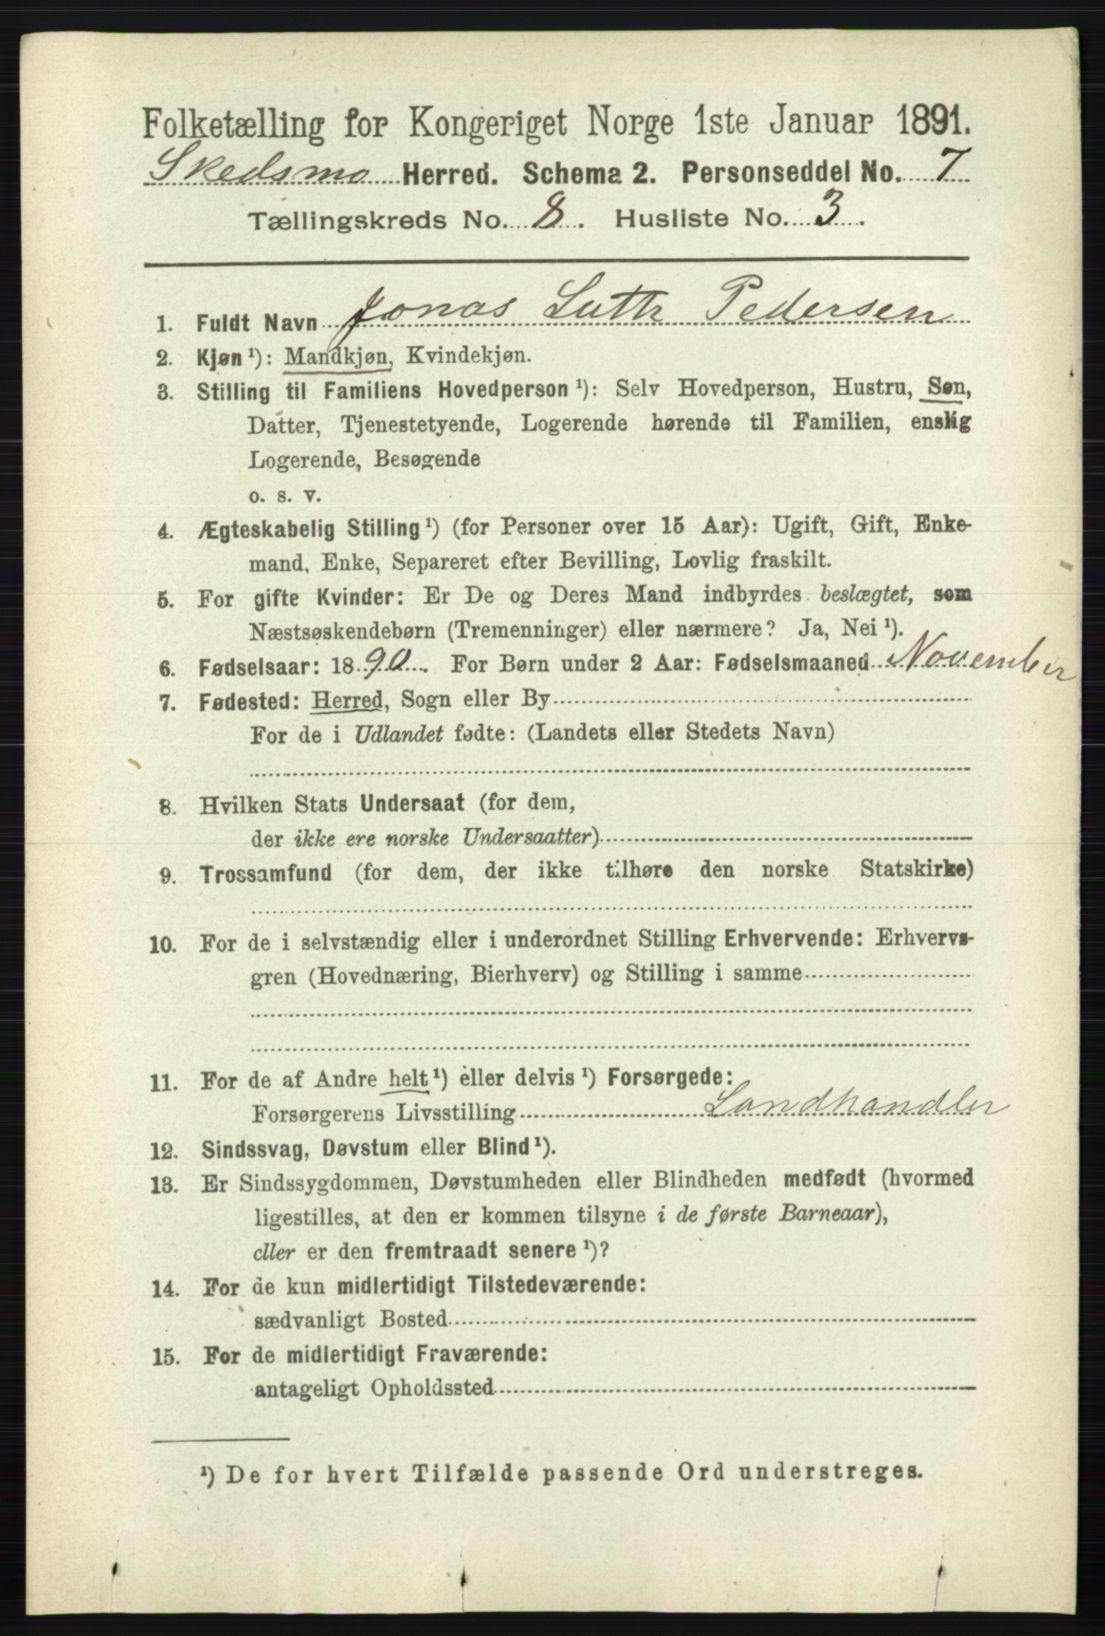 Folketælling for Kongeriget Norge 1ste Januar 1891.
Skedsmo Herred. Schema 2. Personseddel No. 7
Tællingskreds No. 8. Husliste No. 3.
1. Fuldt Navn Jonas Luttr Pedersen
2. Kjøn ¹): Mandkjøn, Kvindekjøn.
3. Stilling til Familiens Hovedperson ¹): Selv Hovedperson, Hustru, Søn,
Datter, Tjenestetyende, Logerende hørende til Familien, enslig
Logerende, Besøgende
o. s. v.
4. Ægteskabelig Stilling ¹) (for Personer over 15 Aar): Ugift, Gift, Enke-
mand, Enke, Separeret efter Bevilling, Lovlig fraskilt.
5. For gifte Kvinder: Er De og Deres Mand indbyrdes beslægtet, som
Næstsøskendebørn (Tremenninger) eller nærmere? Ja, Nei ¹).
6. Fødselsaar: 1890. For Børn under 2 Aar: Fødselsmaaned November
7. Fødested: Herred, Sogn eller By
For de i Udlandet fødte: (Landets eller Stedets Navn)
8. Hvilken Stats Undersaat (for dem,
der ikke ere norske Undersaatter)
9. Trossamfund (for dem, der ikke tilhøre den norske Statskirke)
10. For de i selvstændig eller i underordnet Stilling Erhvervende: Erhvervs-
gren (Hovednæring, Bierhverv) og Stilling i samme
11. For de af Andre helt ¹) eller delvis ¹) Forsørgede:
Forsørgerens Livsstilling Landhandler
12. Sindssvag, Døvstum eller Blind ¹).
13. Er Sindssygdommen, Døvstumheden eller Blindheden medfødt (hvormed
ligestilles, at den er kommen tilsyne i de første Barneaar),
eller er den fremtraadt senere ¹)?
14. For de kun midlertidigt Tilstedeværende:
sædvanligt Bosted
15. For de midlertidigt Fraværende:
antageligt Opholdssted
¹) De for hvert Tilfælde passende Ord understreges.